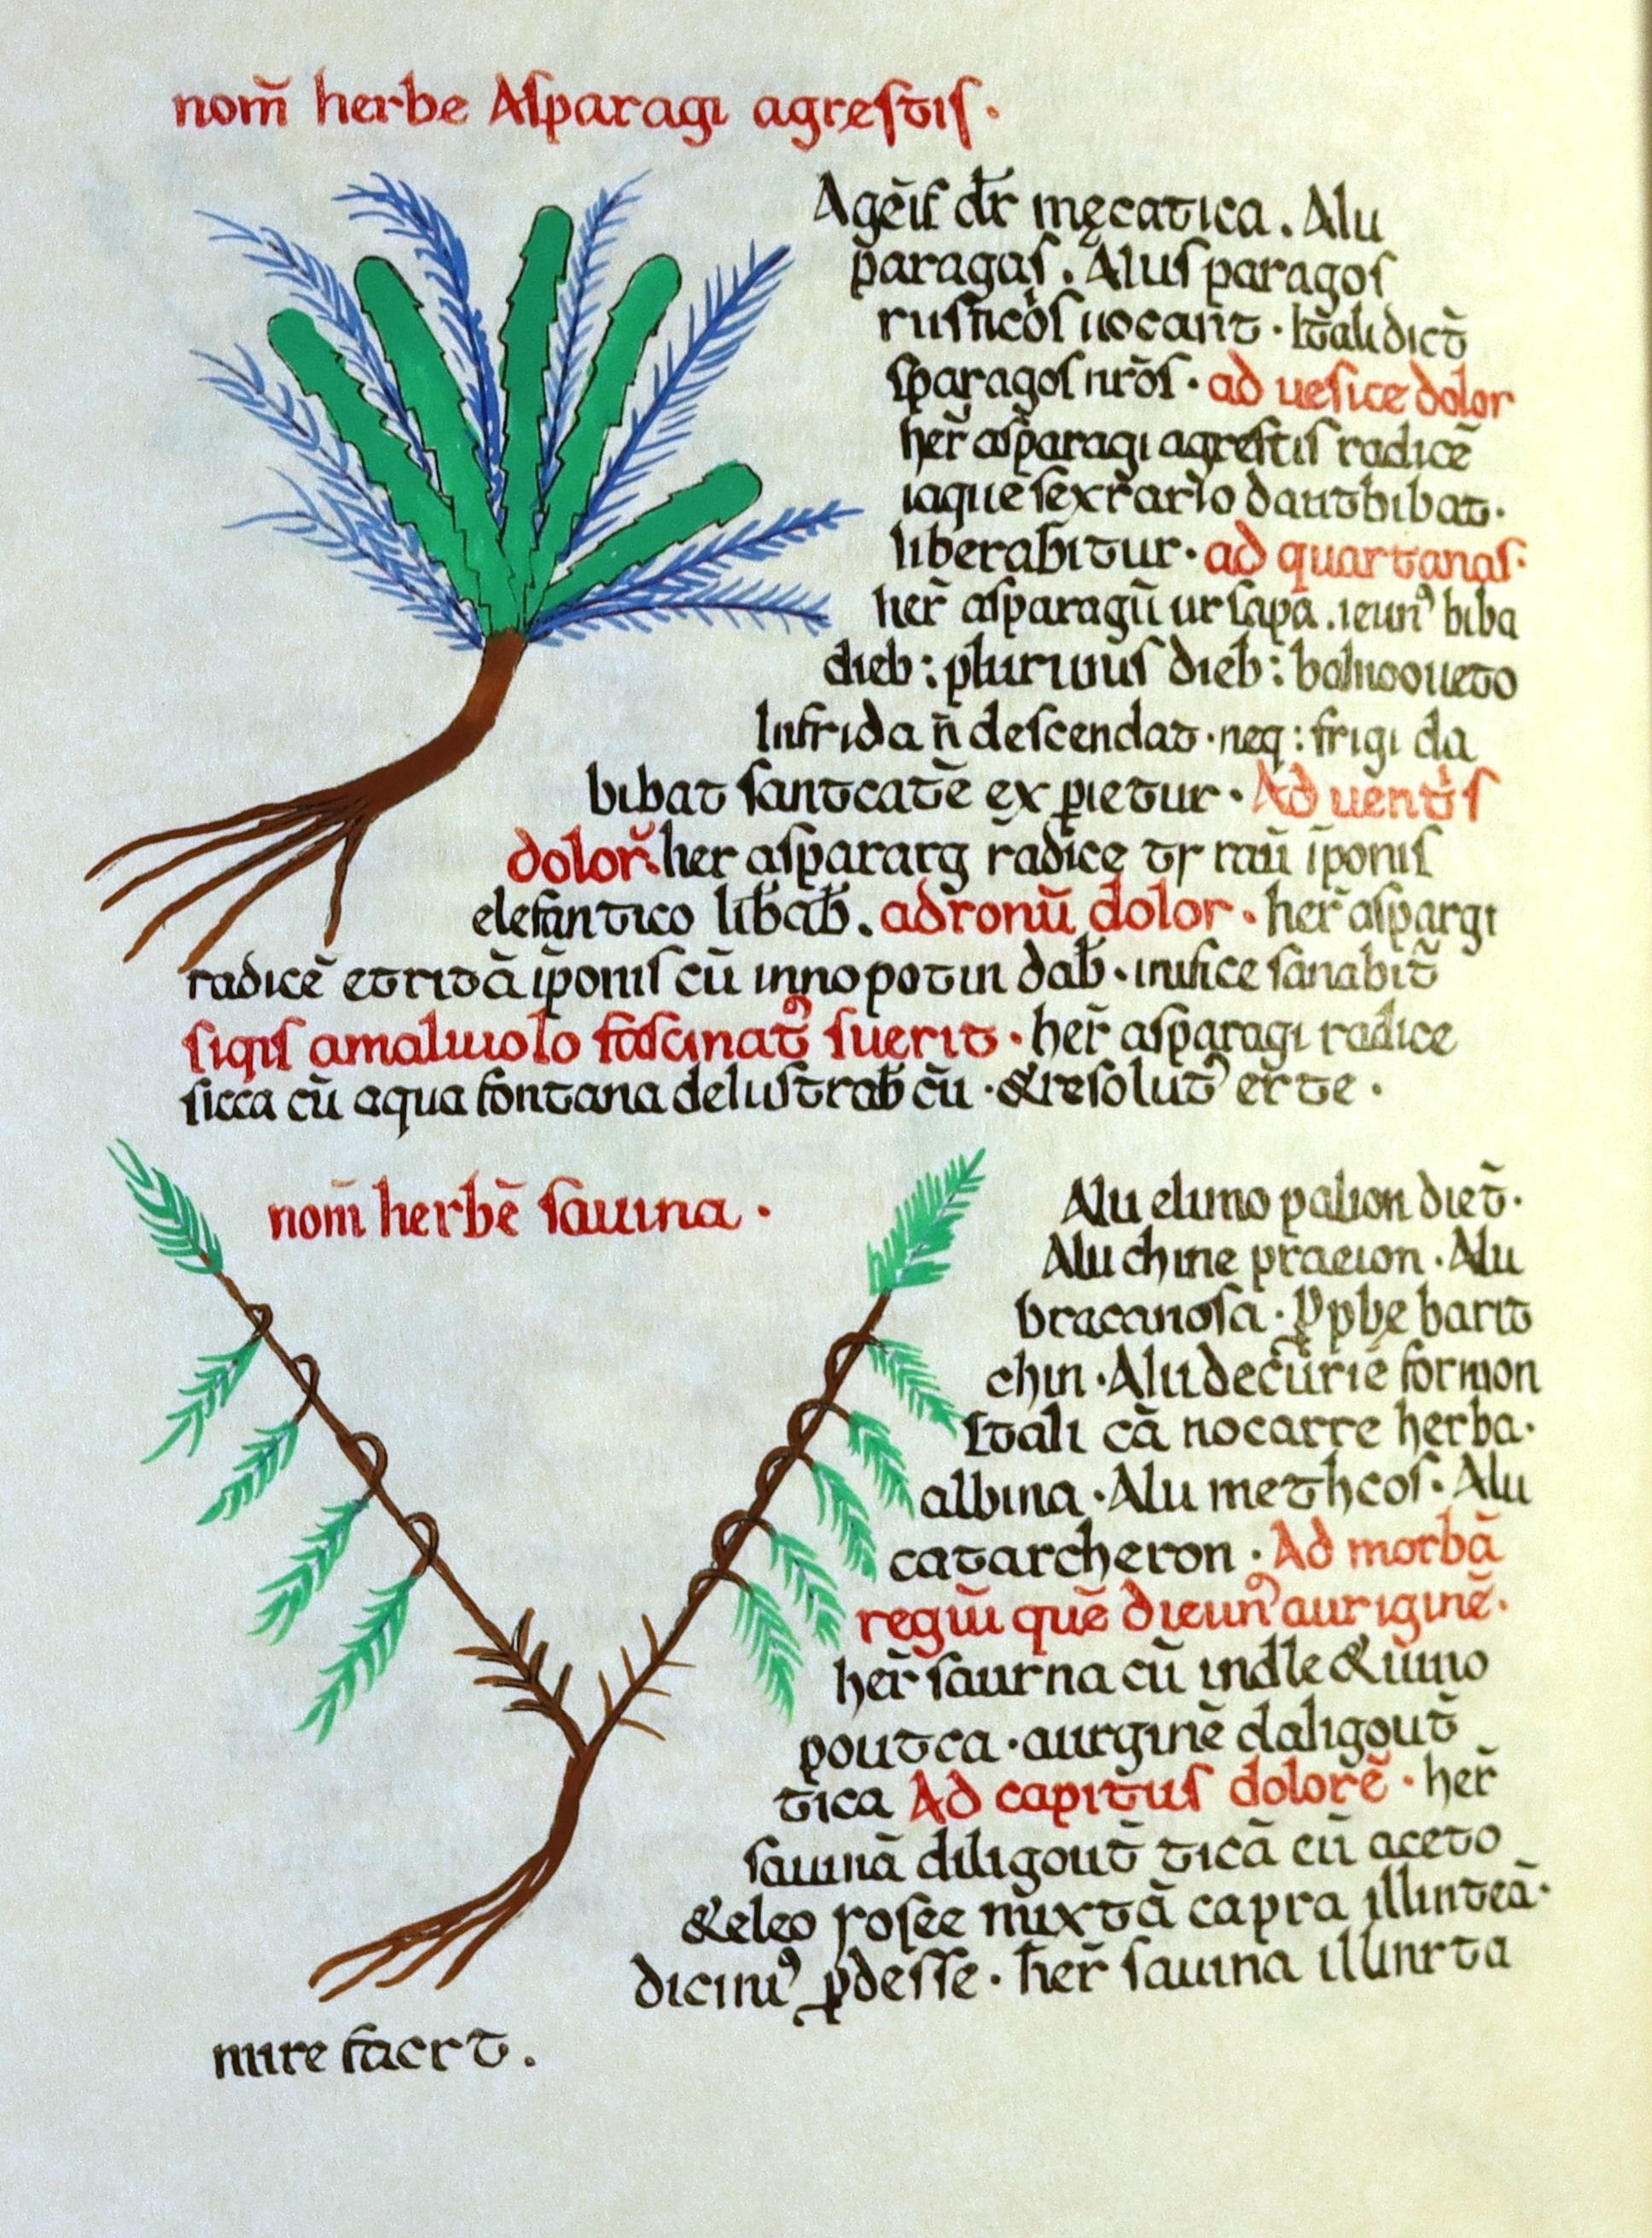 nom̄ herbe Asparagi agrestis.
Agēıſ dr̄ męcatica. Alu
paragas. Alus paragos
rusticos uocant. Itali dict̄
sparagos nr̄os. ad uesice dolor
her̄ asparagi agrestis radicē
liberabitur. ad quartanas.
her̄ asparagū ur sapa. ieun⁹ biba
dieb: plurimis dieb: balneo ueto
In frida n̄ descendat. neq: frigi da
bibat ex pietur. Ad uentris
dolor̄. her aspararg radice tr raū īponis
elefantico lib̄ab̄. ad ronū dolor. her̄ aspargi
radicē et tritā īponis cū inno potin dab̄. sanabit̄
siqis amaluiolo fascinat⁹ fuerit. her̄ asparagi radice
sicca cū aqua fontana delustrab̄ cū. & resolut⁹ er te.
nom̄ herbē sauina.
Alu elimo palion diet̄.
Alu chine praeion. Alu
bracanosa. barit
chin. Alu decūriē formon
Itali cā nocarre herba.
albina. Alu methcos. Alu
catarcheron. Ad morbā
regiū quē dicun⁹ auriginē.
her̄ saurna cū indle & uino
poutca. aurginē daligout̄
tica Ad capitus dolorē. her̄
sauinā diligout̄ ticā cū aceto
& eleo rosee mixtā capra illinteā.
dicim⁹ pdesse. her̄ sauina illinrta
nire facrt.